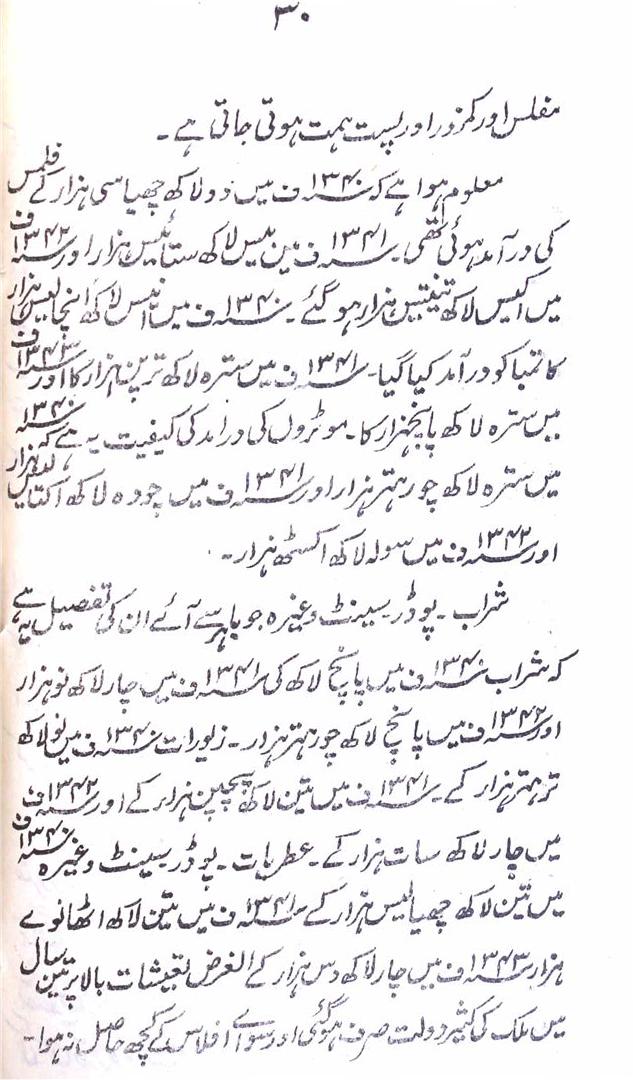 ۳۰
مفلس اور کمزور اور پست ہمت ہوتی جاتی ہے۔
معلوم ہوا ہے کہ ۱۳۴۰ف میں دو لاکھ چھیاسی ہزار کے فلمس
کی درآمد ہوئی تھی۔ ۱۳۴۱ف میں بیس لاکھ ستائیس ہزار اور ۱۳۴۲ف
میں اکیس لاکھ تینتیس ہزار ہو گئے۔ ۱۳۴۰ف میں انیس لاکھ انچالیس ہزار
کا تمباکو درآمد کیا گیا۔ ۱۳۴۱ف میں سترہ لاکھ ترپن ہزار کا اور ۱۳۴۳ف
میں سترہ لاکھ پانچہزار کا۔ موٹروں کی درامد کی کیفیت یہ ہے کہ ۱۳۴۰
میں سترہ لاکھ چوہتر ہزار اور ۱۳۴۱ف میں چودہ لاکھ اکتالیس ہزار
اور ۱۳۴۲ف میں سولہ لاکھ اکسٹھ ہزار۔
شراب۔ پوڈر۔ سینٹ وغیرہ جو باہر سے آئے ان کی تفصیل یہ ہے
کہ شراب ۱۳۴۰ف میں پانچ لاکھ کی ۱۳۴۱ف میں چار لاکھ نو ہزار
اور ۱۳۴۲ف میں پانچ لاکھ چوہتر ہزار۔ زیورات ۱۳۴۰ف میں نو لاکھ
تہتر ہزار کے۔ ۱۳۴۱ف میں تین لاکھ پچپن ہزار کے اور ۱۳۴۲ف
میں چار لاکھ سات ہزار کے۔ عطریات۔ پوڈر۔ سینٹ وغیرہ ۱۳۴۰ف
میں تین لاکھ چھیالیس ہزار کے ۱۳۴۱ف میں تین لاکھ اٹھانوے
ہزار ۱۳۴۳ف میں چار لاکھ دس ہزار کے الغرض تعیشات بالا پر تین سال
میں ملک کی کثیر دولت صرف ہو گئی اور سوائے افلاس کے کچھ حاصل نہ ہوا۔